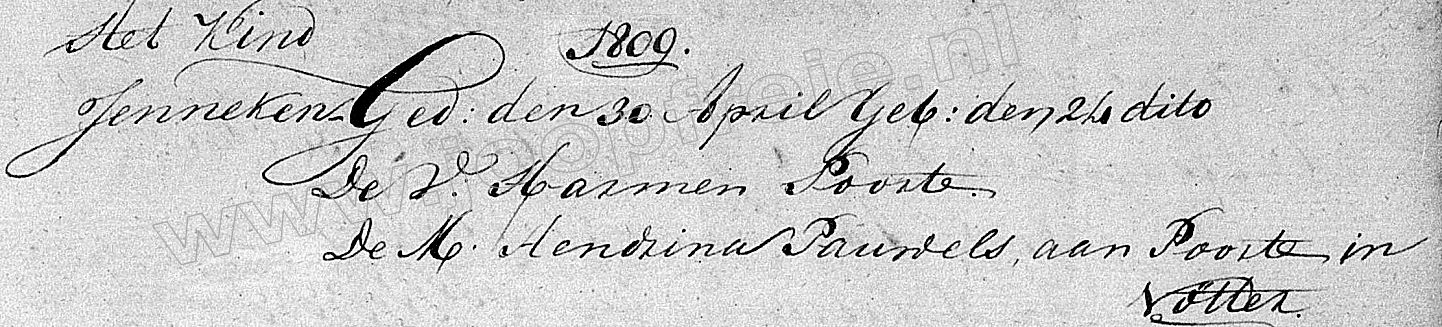 Het Kind 1809.
Jenneken Ged: den 30 April Geb: den 24 dito
De V. Harmen Poorte.
De M. Hendrina Pauwels, aan Poorte in
Nötter.
www.joopfreje.nl